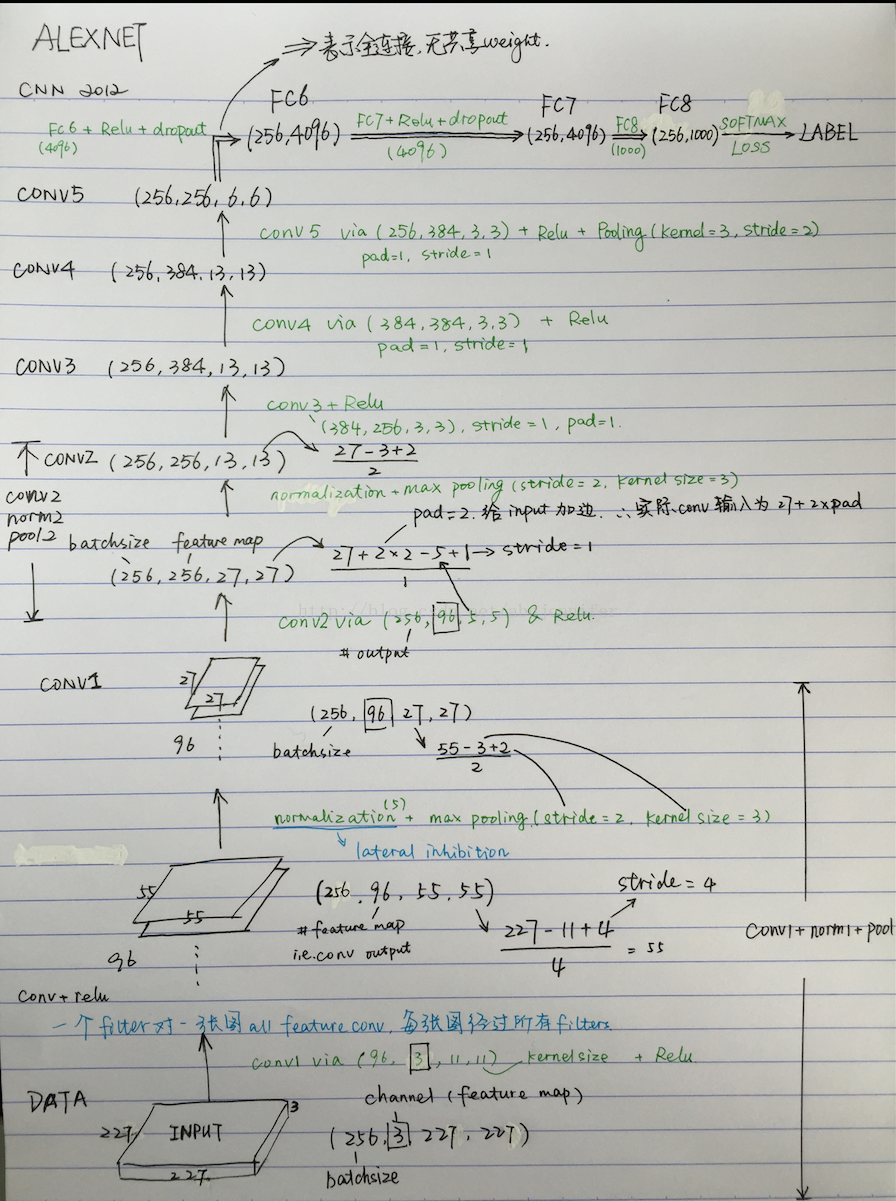 ALEXNET
⇒表示全连接,无共享weight.
CNN 2012
FC6
FC7
FC8
FC6 + Relu + dropout
(4096)
(256,4096)
FC7+Relu+dropout
(4096)
(256,4096)
FC8
(1000)
(256,1000)
SOFTMAX
LOSS
LABEL
CONV5
(256,256,6,6)
conv5 via (256,384,3,3) + Relu + Pooling (kernel=3, stride=2)
pad=1, stride=1
CONV4
(256,384,13,13)
conv4 via (384,384,3,3) + Relu
pad=1, stride=1
CONV3
(256,384,13,13)
conv3 + Relu
(384,256,3,3), stride=1, pad=1.
CONV2
(256,256,13,13)
27-3+2
2
normalization + max pooling (stride=2, kernel size=3)
conv2
norm2
pool2
pad=2. 给input加边. ∴实际conv输入为27+2×pad
batchsize
feature map
(256,256,27,27)
27+2×2-5+1→stride=1
1
conv2 via (256,96,5,5) & Relu.
# output
CONV1
27
27
96
(256,96,27,27)
batchsize
55-3+2
2
normalization(5) + max pooling (stride=2, kernel size=3)
lateral inhibition
55
55
96
(256,96,55,55)
# feature map
i.e. conv output
stride=4
227-11+4
4
=55
Conv1+norm1+pool
Conv+relu
一个filter对一张图all feature conv, 每张图经过所有filters
conv1 via (96,3,11,11) kernel size + Relu
DATA
channel (feature map)
227
INPUT
3
227
(256,3,227,227)
batchsize